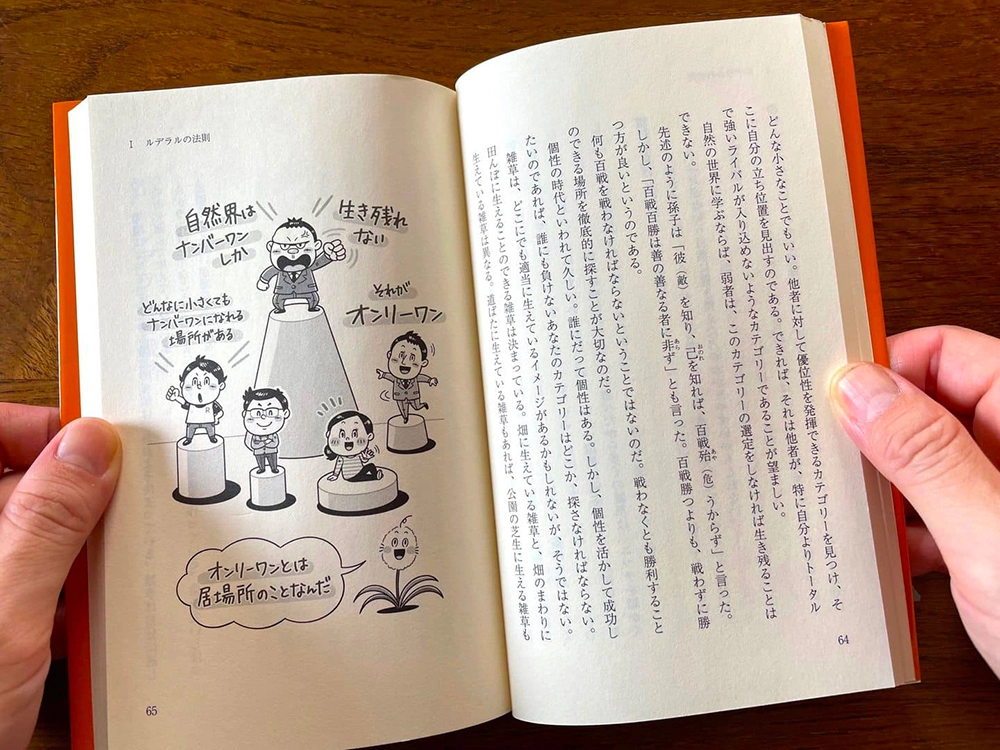 どんな小さなことでもいい。他者に対して優位性を発揮できるカテゴリーを見つけ、そ
こに自分の立ち位置を見出すのである。できれば、それは他者が、特に自分よりトータル
で強いライバルが入り込めないようなカテゴリーであることが望ましい。
自然の世界に学ぶならば、弱者は、このカテゴリーの選定をしなければ生き残ることは
できない。
先述のように孫子は「彼（敵）を知り、己おのれを知れば、百戦殆あや（危）うからず」と言った。
しかし、「百戦百勝は善の善なる者に非あらず」とも言った。百戦勝つよりも、戦わずに勝
つ方が良いというのである。
何も百戦を戦わなければならないということではないのだ。戦わなくとも勝利すること
のできる場所を徹底的に探すことが大切なのだ。
個性の時代といわれて久しい。誰にだって個性はある。しかし、個性を活かして成功し
たいのであれば、誰にも負けないあなたのカテゴリーはどこか、探さなければならない。
雑草は、どこにでも適当に生えているイメージがあるかもしれないが、そうではない。
田んぼに生えることのできる雑草は決まっている。畑に生えている雑草と、畑のまわりに
生えている雑草は異なる。道ばたに生えている雑草もあれば、公園の芝生に生える雑草も
64
I ルデラルの法則
自然界は
ナンバーワン
しか
生き残れ
ない
どんなに小さくても
ナンバーワンになれる
場所がある
それが
オンリーワン
オンリーワンとは
居場所のことなんだ
65